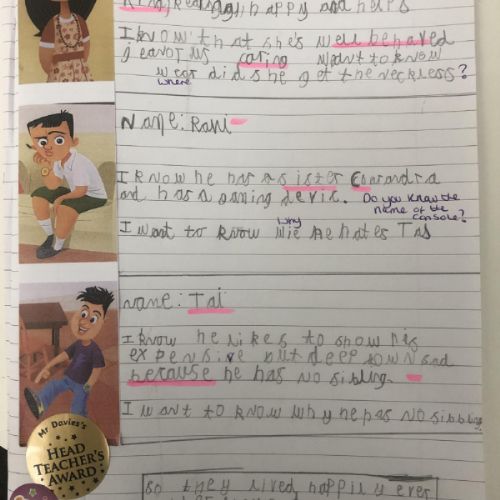 happy and helps
I know that she's well behaved
caring want to know
wear did she get the neckless?
where
Name: Rani
I know he has a sister Casandra
and has a gaming devic. Do you know the
name of the
console?
why
I want to know wie he hates Tas
name: Tai
I know he likes to show his
expensive but deep down sad
because he has no sibling.
I want to know why he has no sibbling
Mr Davies's
HEAD
TEACHER'S
AWARD
So they lived happily ever